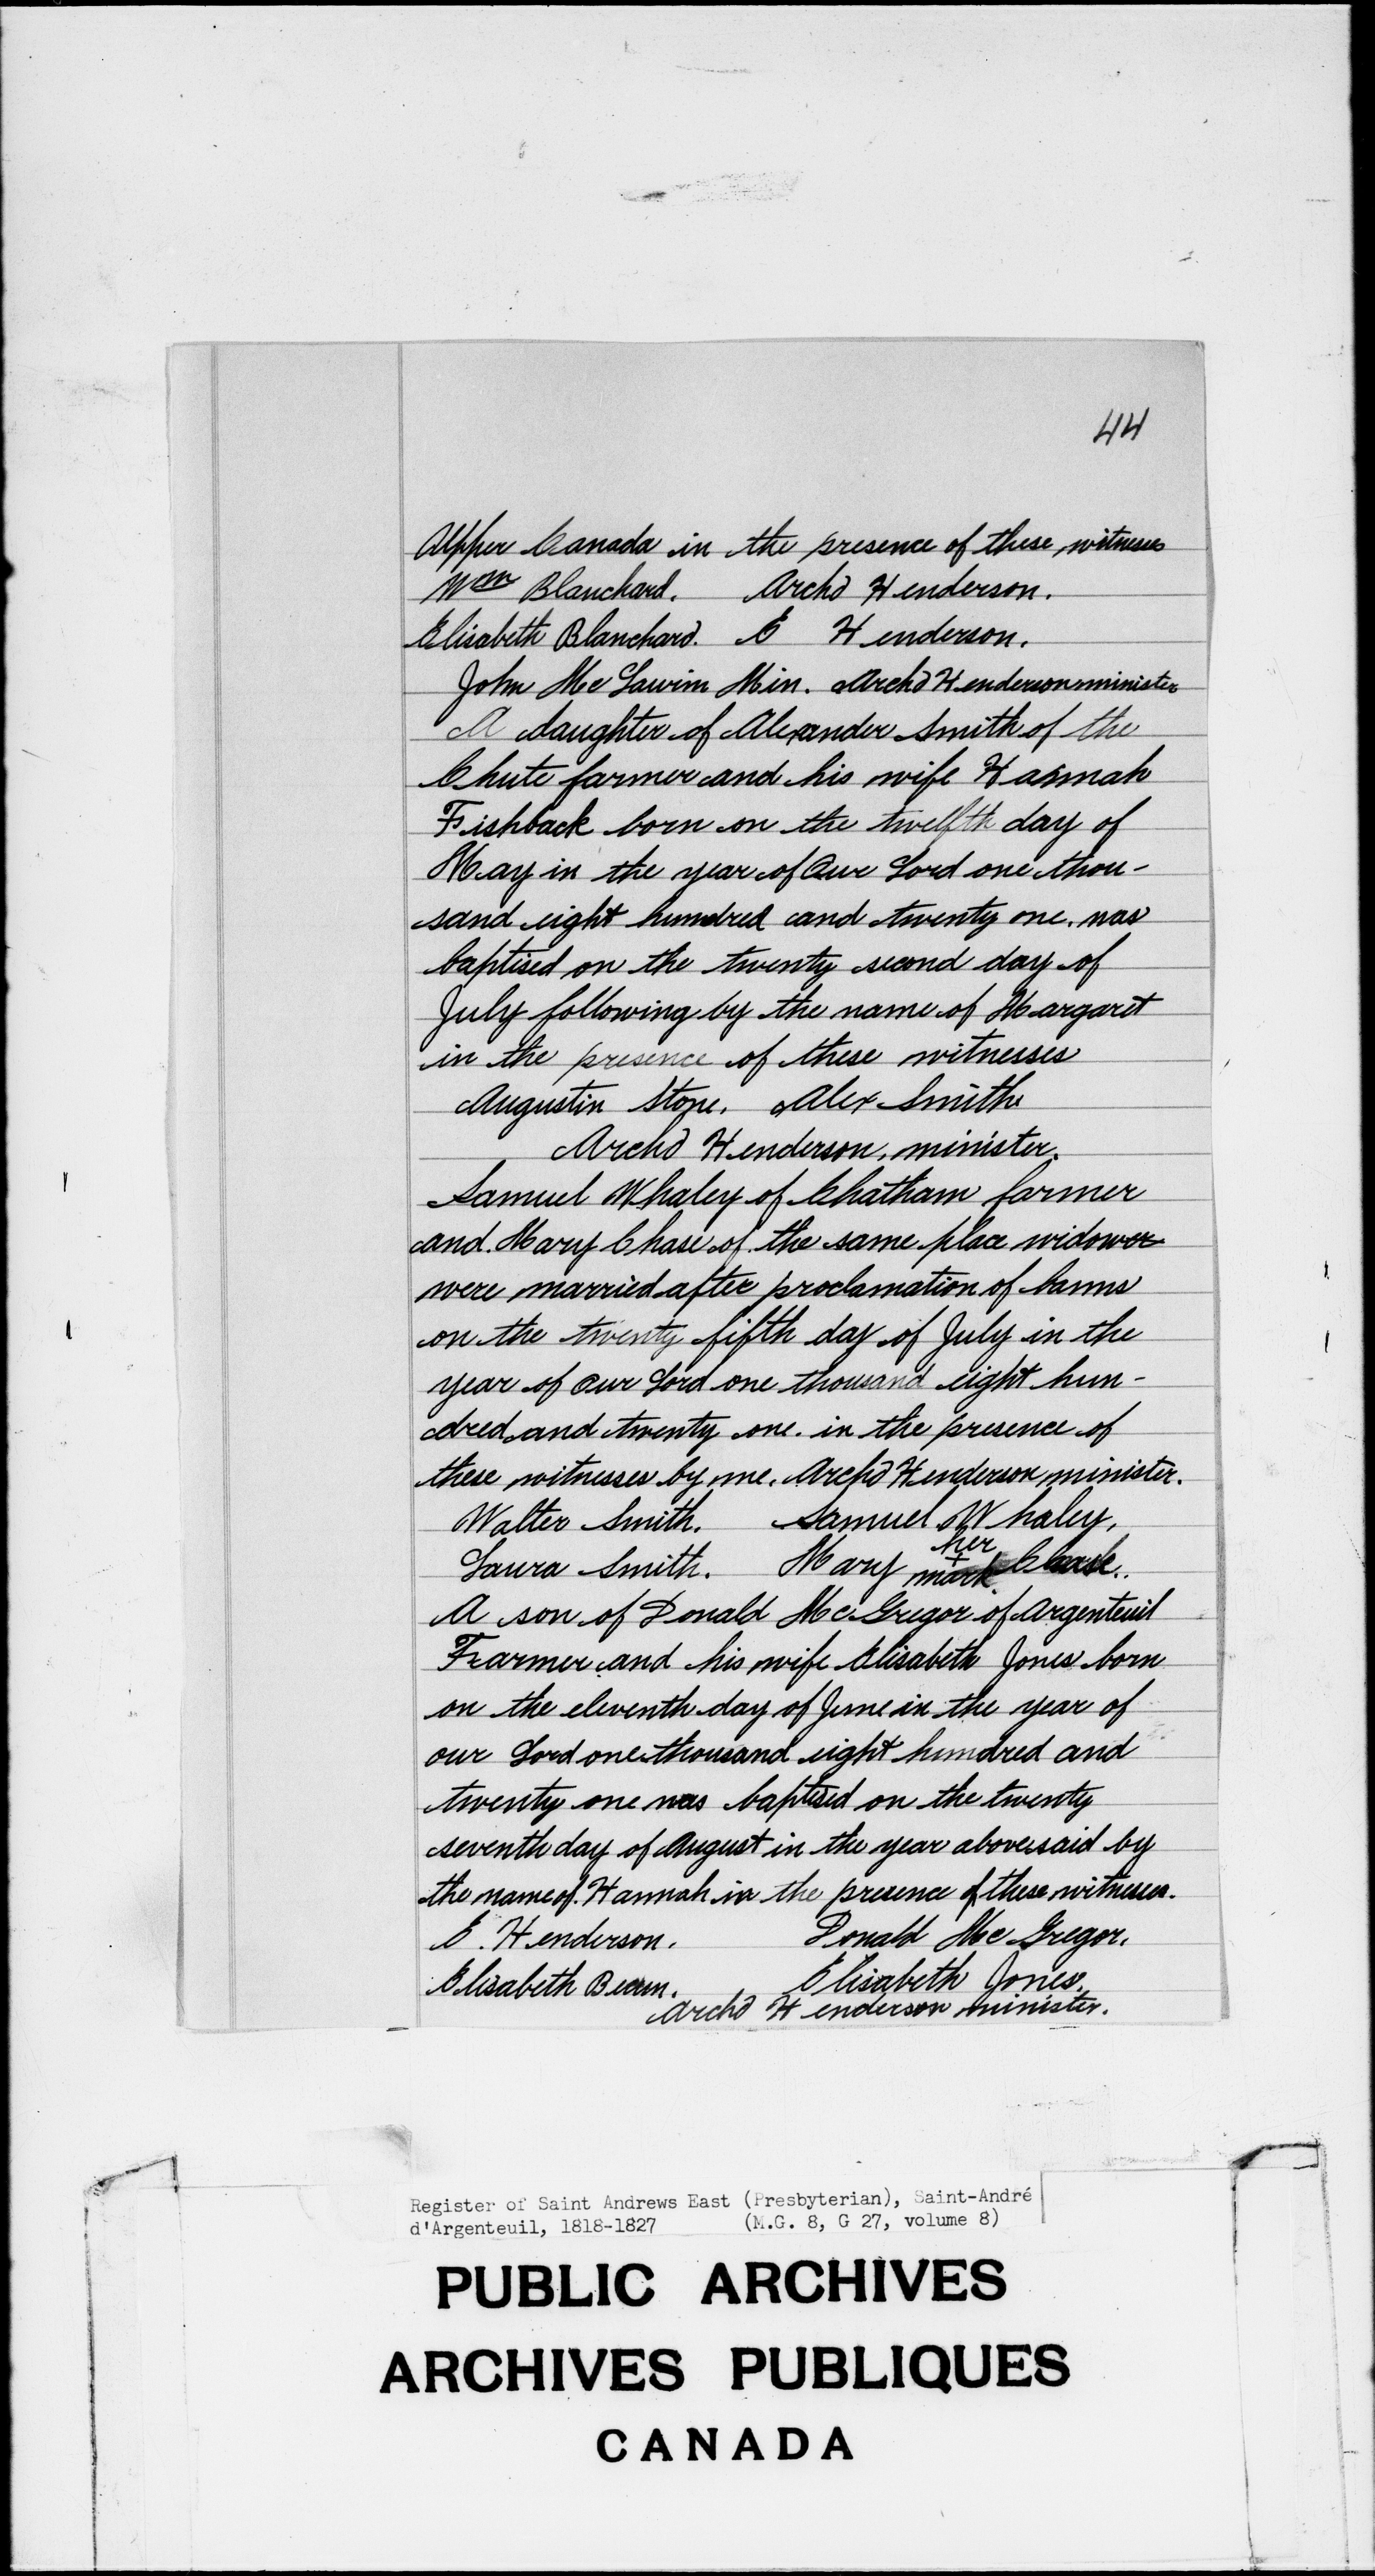 44
Upper Canada in the presence of these witnesses
Wm Blanchard. Archd Henderson.
Elisabeth Blanchard. E Henderson.
John Mc Laurin Min. Archd Henderson minister
A daughter of Alexander Smith of the
Chute farmer and his wife Hannah
Fishback born on the twelfth day of
May in the year of Our Lord one thou-
sand eight hundred and twenty one. was
baptised on the twenty second day of
July following by the name of Margaret
in the presence of these witnesses
Augustin Stone. Alex Smith
Archd Henderson, minister.
Samuel Whaley of Chatham farmer
and Mary Chase of the same place widow
were married after proclamation of banns
on the twenty fifth day of July in the
year of our Lord one thousand eight hun-
dred and twenty one. in the presence of
these witnesses by me. Archd Henderson minister.
Walter Smith. Samuel Whaley,
her
Laura Smith. Mary + mark
A son of Donald Mc Gregor of Argenteuil
Farmer and his wife Elisabeth Jones born
on the eleventh day of June in the year of
our Lord one thousand eight hundred and
twenty one was baptised on the twenty
seventh day of August in the year abovesaid by
the name of Hannah in the presence of these witnesses.
E. Henderson. Donald Mc Gregor.
Elisabeth Beam. Elisabeth Jones.
Archd Henderson minister.
Register of Saint Andrews East (Presbyterian), Saint-André
d'Argenteuil, 1818-1827 (M.G. 8, G 27, volume 8)
PUBLIC ARCHIVES
ARCHIVES PUBLIQUES
CANADA